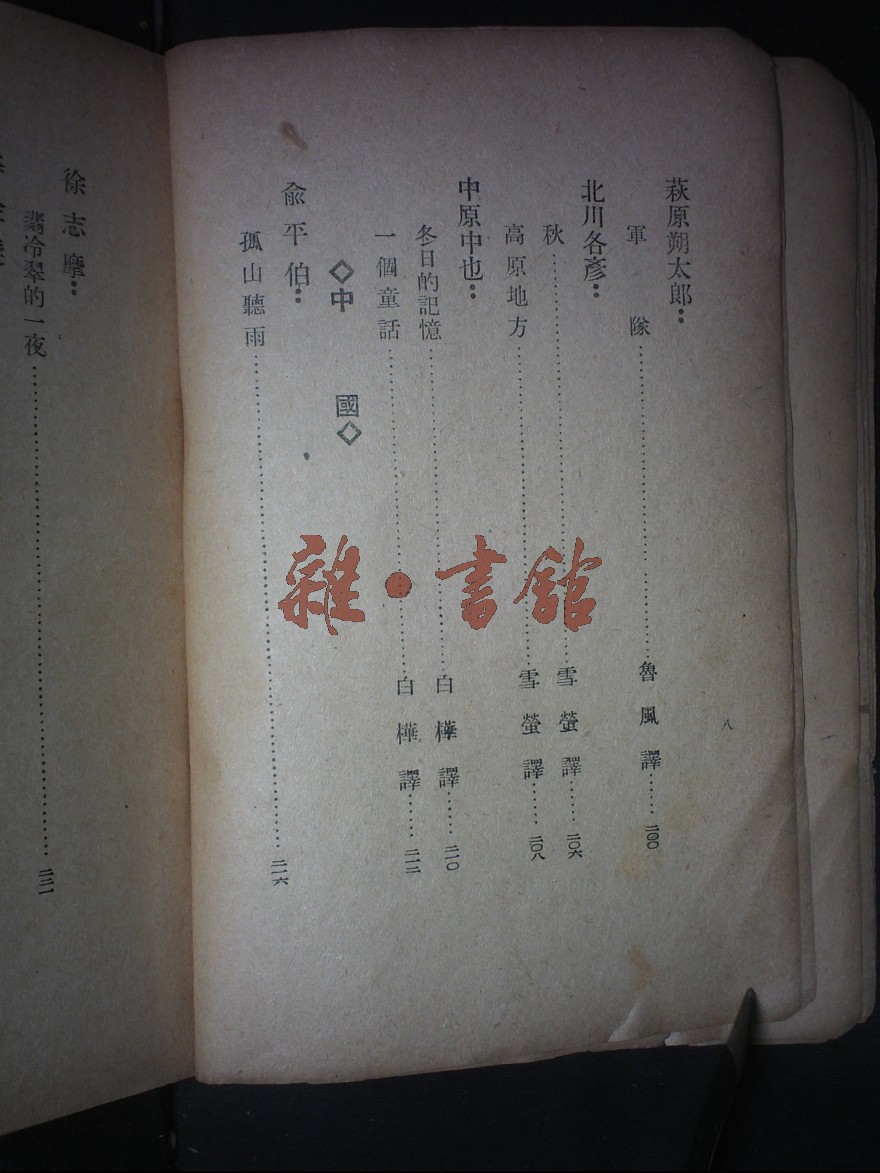 萩原朔太郎：
軍隊……魯風譯……二〇〇
北川各彥：
秋……雪螢譯……二〇六
高原地方……雪螢譯……二〇八
中原中也：
冬日的記憶……白樺譯……二一〇
一個童話……白樺譯……二一二
◇中國◇
俞平伯：
孤山聽雨……二一六
八
徐志摩：
翡冷翠的一夜……二二一
雜·書舘